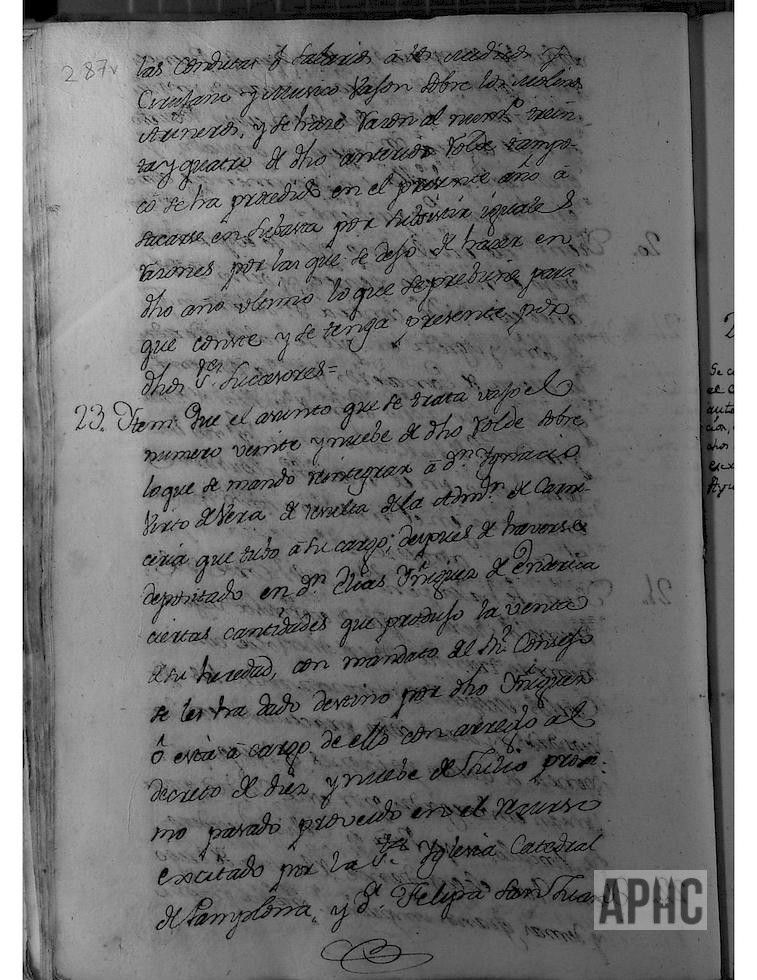 287v
las conductas ó Salarios à los medicos y
Cirujano y Musico Vason sobre los Molinos
Arineros, y se hace razon al num.º trein
ta y quatro de dho anterior rolde tampo-
co se ha procedido en el presente año à
sacarse en subasta por subsistir iguales
razones por las que se dejo de hacer en
dho año ultimo lo que se prebiene para
que conste y se tenga presente por
dhos S.res Sucesores =
23. Item: Que el asunto que se trata vajo el
numero veinte y nuebe de dho rolde sobre
lo que se mandó reintegrar à dn. Ygnacio
Virto de Vera de resulta de la Admn. de Carni
ceria que tubo à su cargo, despues de haverse
depositado en dn. Elias Yñiguez de
ciertas cantidades que produjo la venta
de su heredad, con mandato del Rl. Consejo
se les ha dado destino por dho Yñiguez
ó està à cargo de ello con arreglo al
decreto de diez y nuebe de Junio proxi-
mo pasado proveido en el recurso
excitado por la S.ta Yglesia Catedral
de Pamplona, y d.ª Felipa San Juan
2
Se c
el C
auto
ción,
años
Ayu
APHC